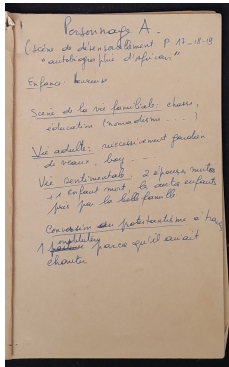 Personnage A.
(scène de désensablement P. 17-18-19
"autobiographie d'africain"
Enfance: heureuse
Scène de la vie familiale: chasse,
éducation (nomadisme ...)
Vie adulte: successivement gardien
de veaux, boy ...
Vie sentimentale: 2 épouses mortes
+ 1 enfant mort, les autres enfants
pris par la belle famille
Conversion au protestantisme à
1 instituteur parce qu'il aimait
chanter